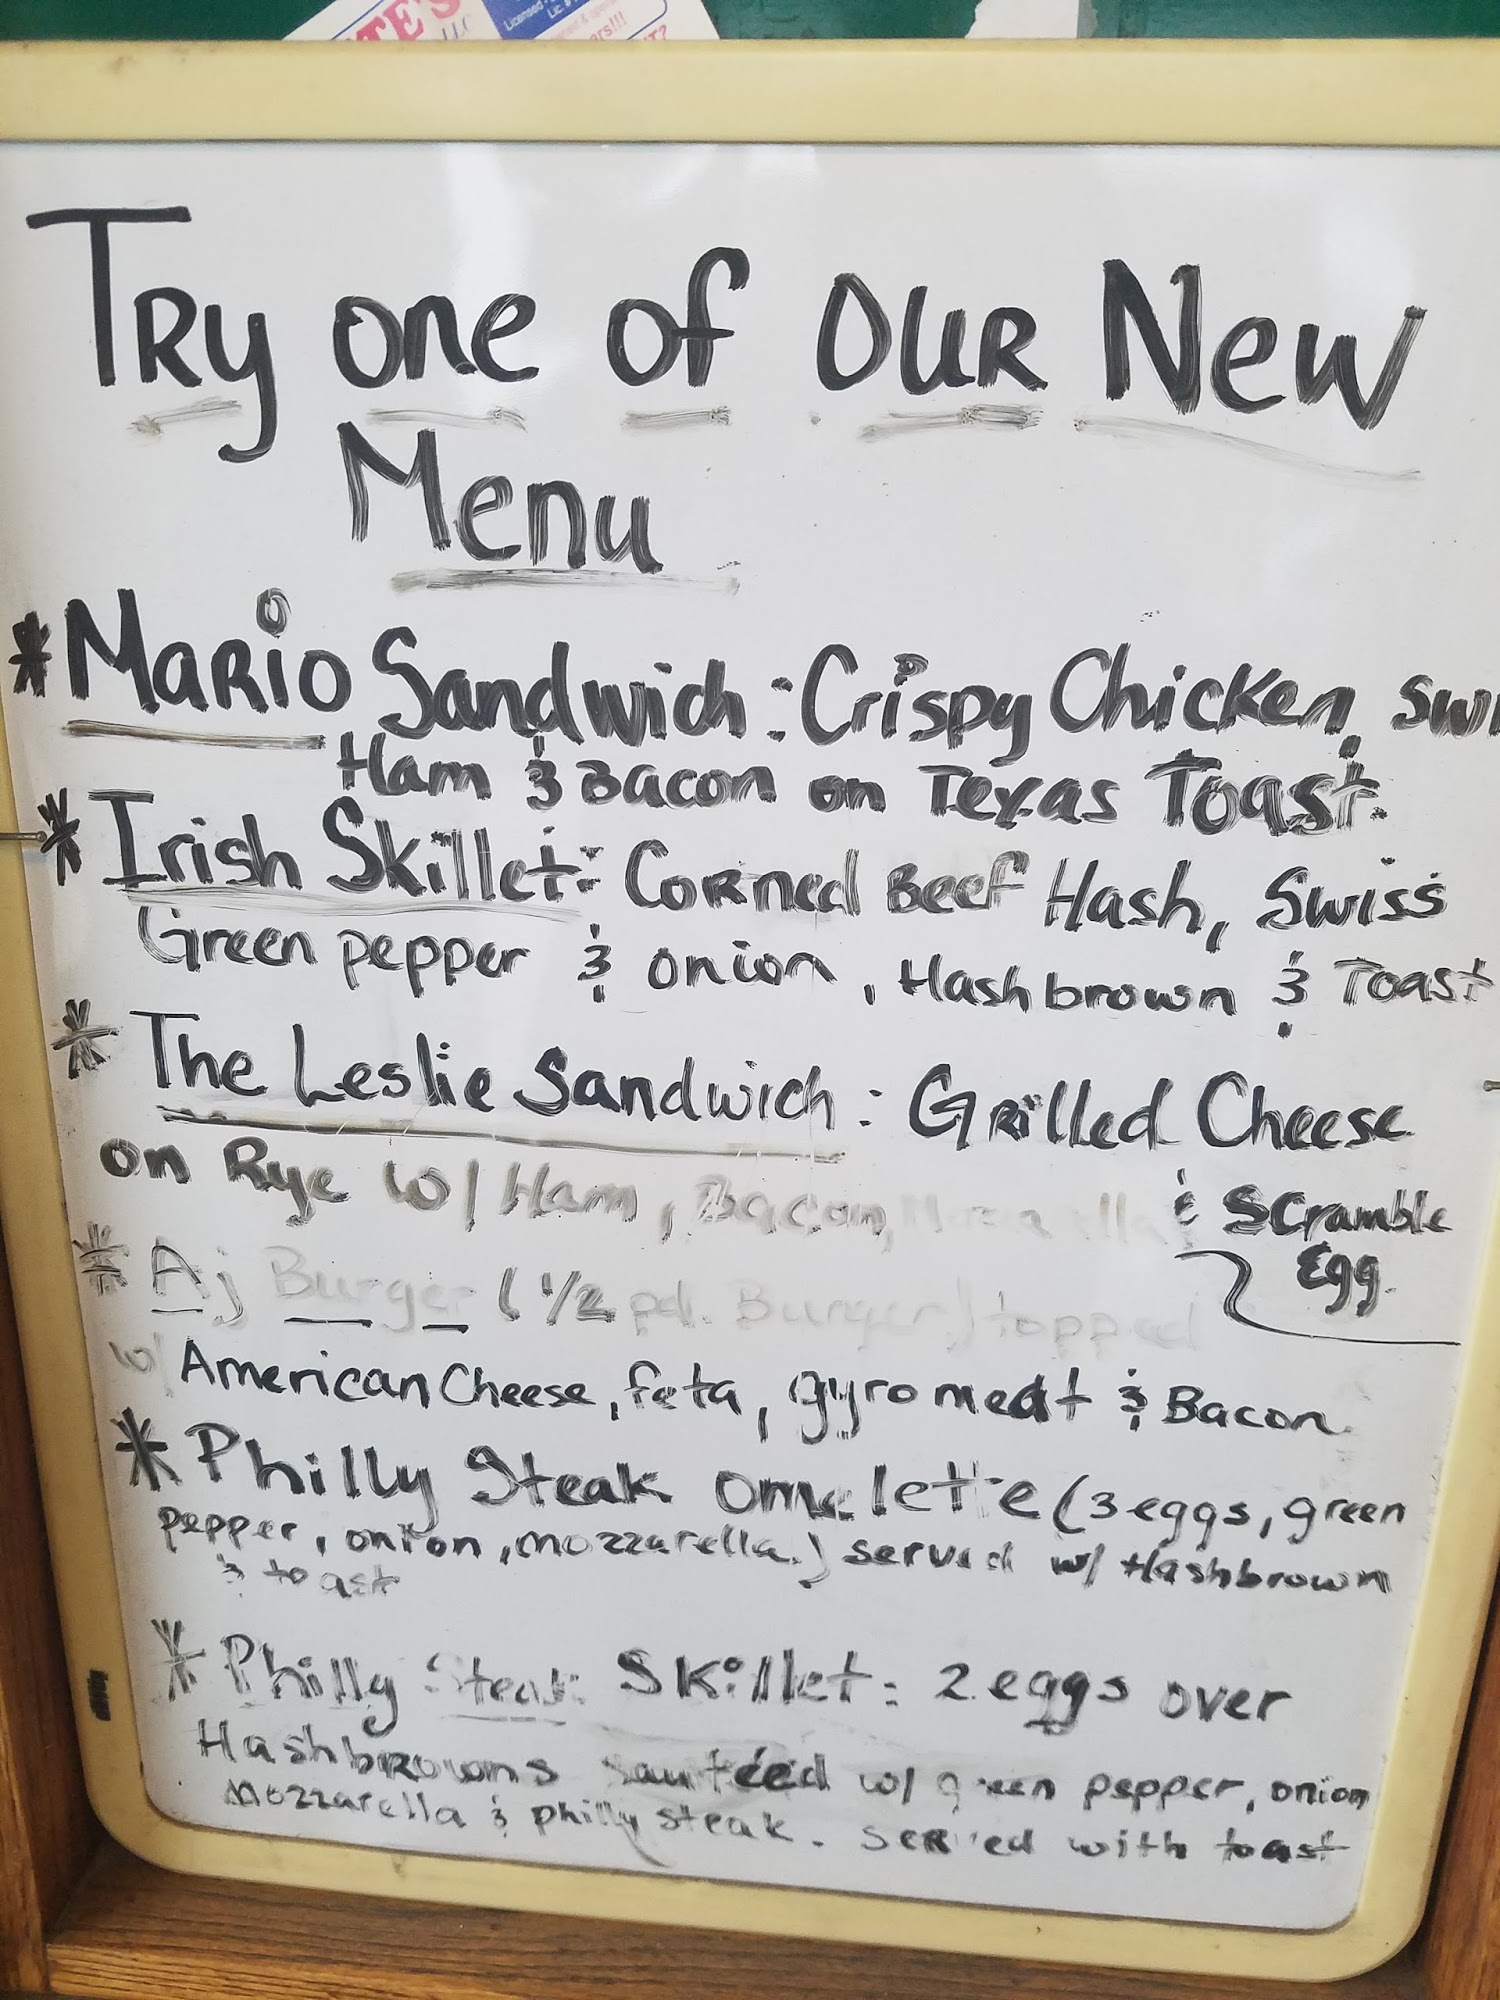 TE'S
LLC
Licensed
Try one of our New
Menu
* Mario Sandwich: Crispy Chicken, Swi
Ham & Bacon on Texas Toast.
* Irish Skillet: Corned Beef Hash, Swiss
Green pepper & onion, Hashbrown & Toast
* The Leslie Sandwich: Grilled Cheese
on Rye w/ Ham, Bacon, Mozzarella & Scramble
Egg.
* Aj Burger (1/2 pd. Burger) topped
w/ American Cheese, feta, gyro meat & Bacon
* Philly Steak omelette (3 eggs, green
pepper, onion, mozzarella.) served w/ Hashbrown
& toast
* Philly Steak Skillet: 2 eggs over
Hashbrowns sautéed w/ green pepper, onion
mozzarella & philly steak. served with toast